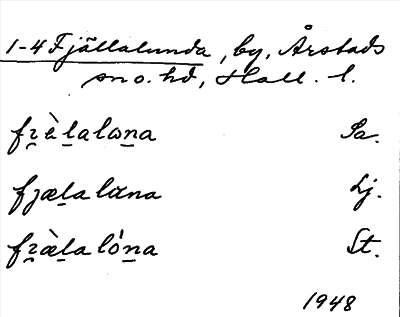 1-4 Fjällalunda, by, Årstads
sn o. hd, Hall. l.
fz̯èḻalɷṉa Sa.
fjæḻalɑna Lj.
fz̯æ̀ḻalóṉa St.
1948